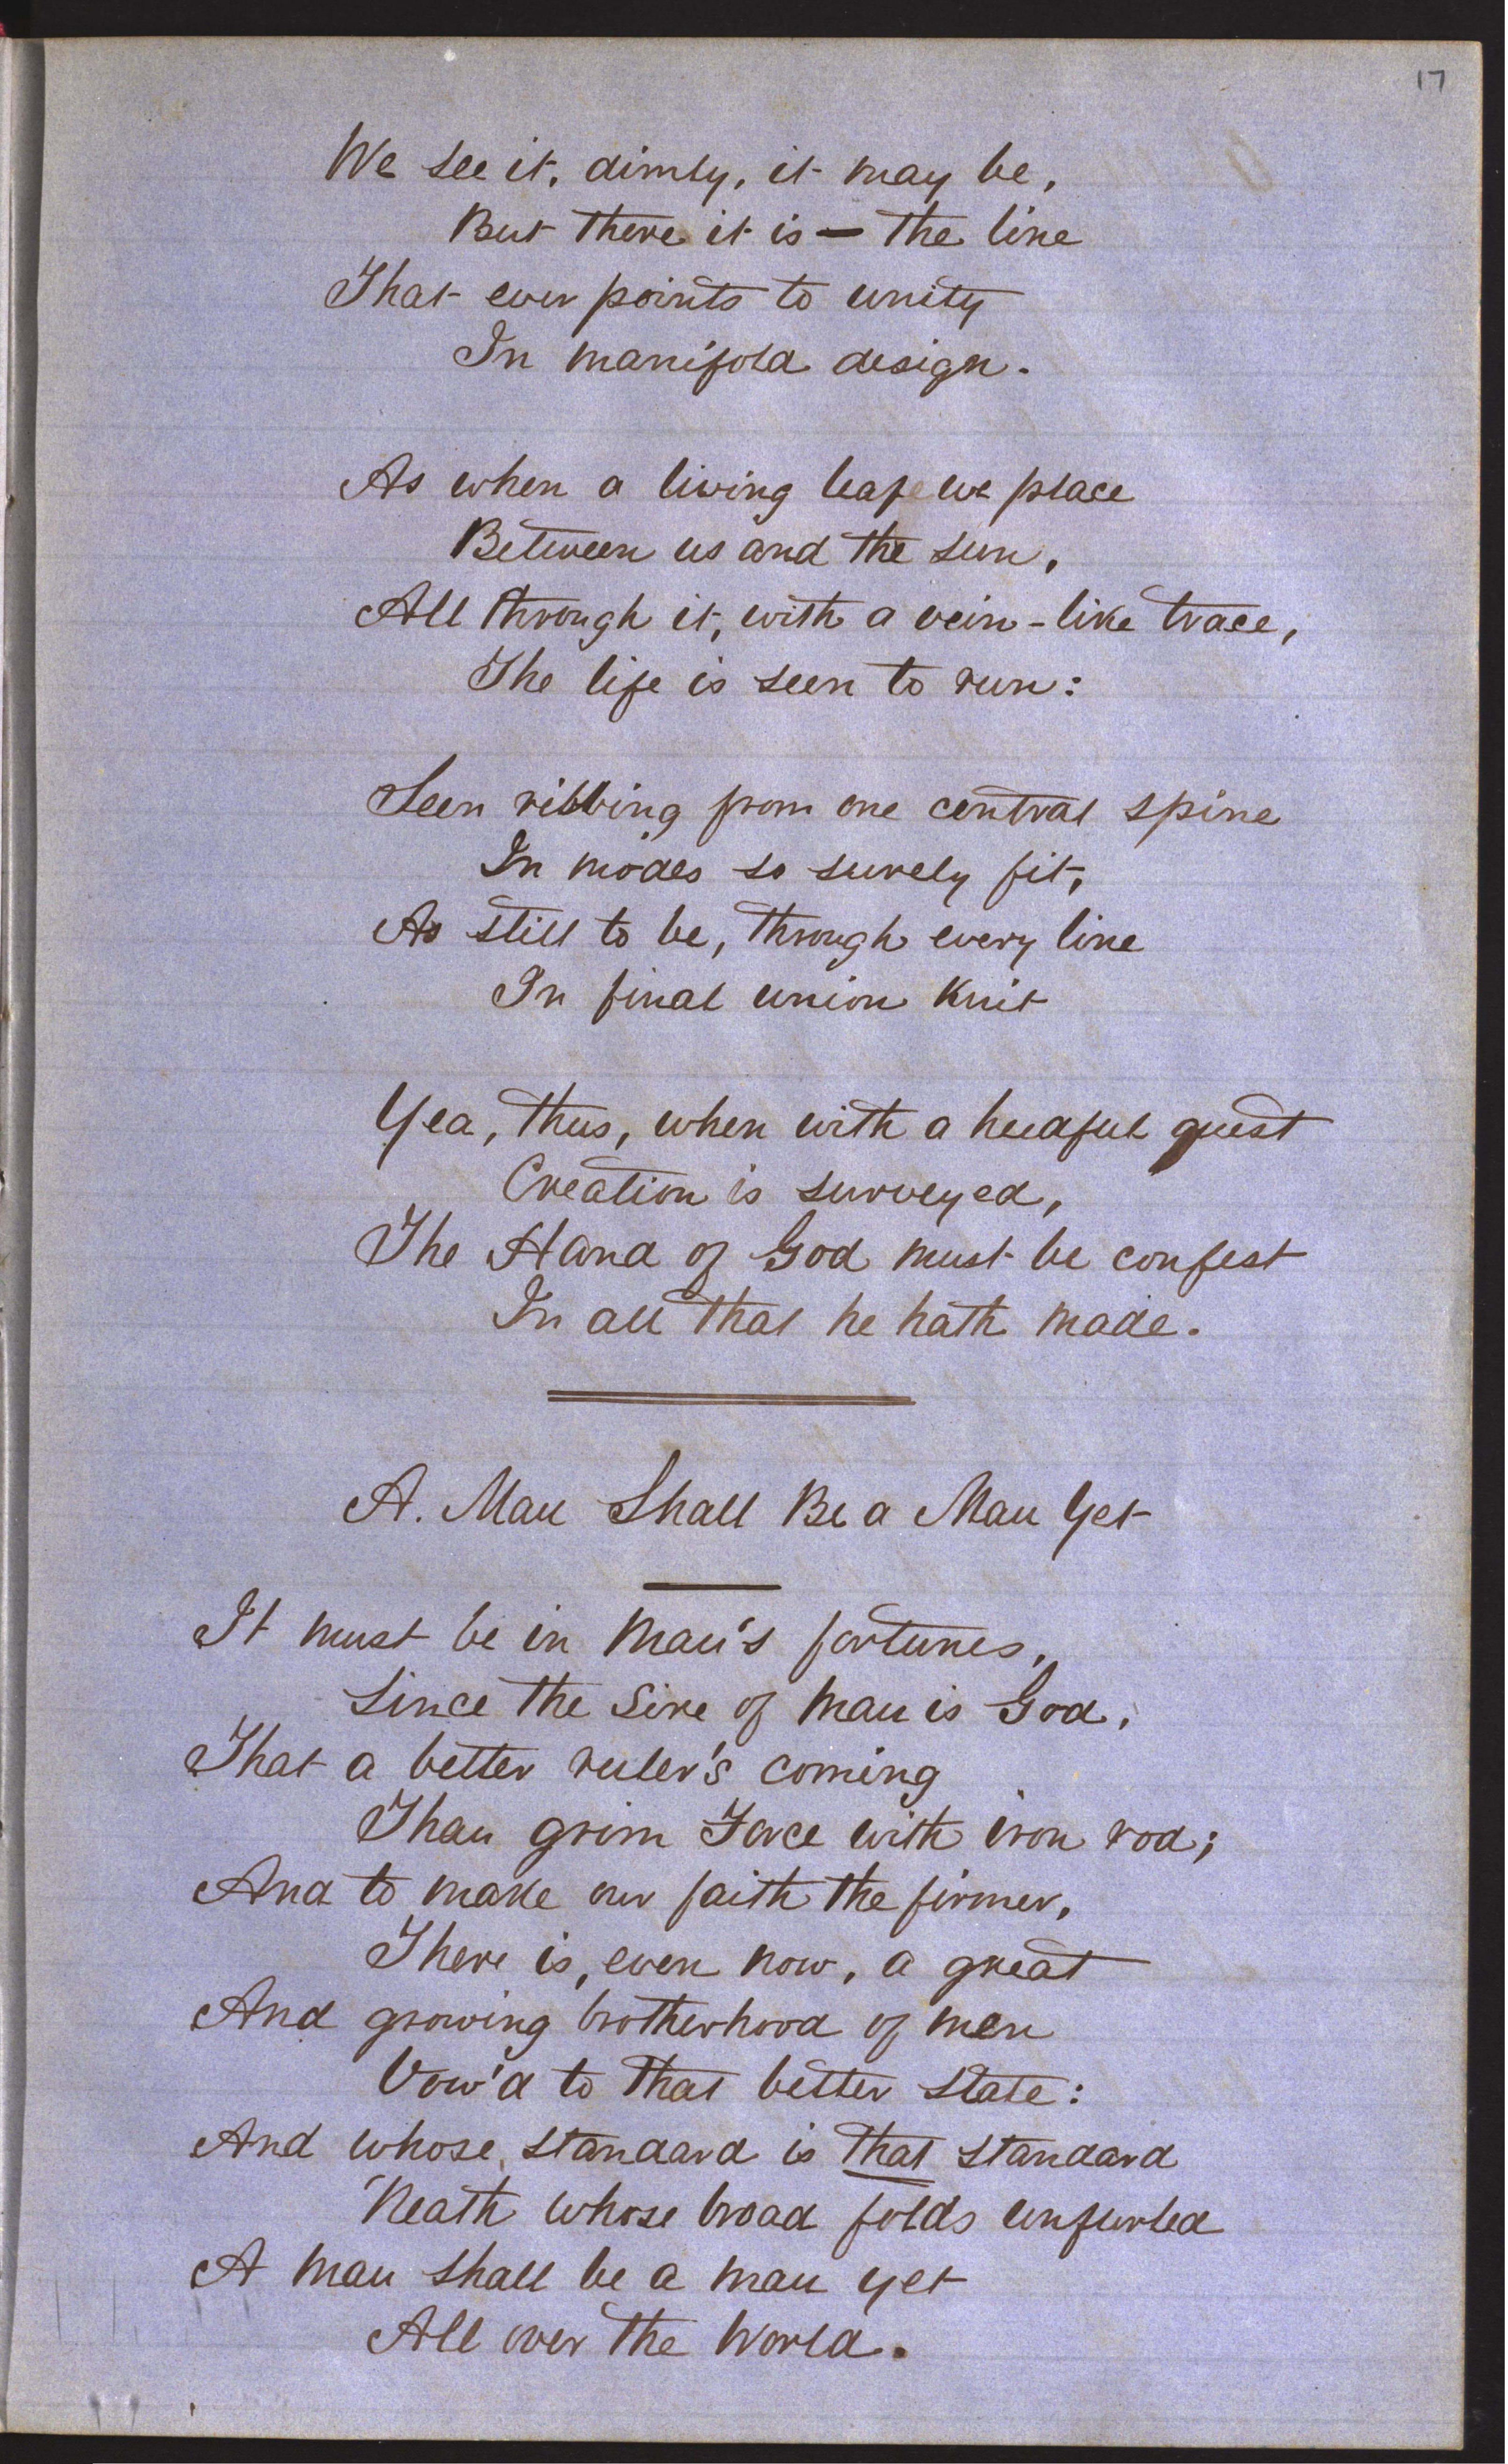 17
We see it, dimly, it may be,
But there it is — the line
That ever points to unity
In manifold design.
As when a living leaf we place
Between us and the sun,
All through it, with a vein-like trace,
The life is seen to run:
Seen ribbing from one central spine
In modes so surely fit,
As still to be, through every line
In final union knit
Yea, thus, when with a heedful quest
Creation is surveyed,
The Hand of God must be confest
In all that he hath made.
A. Man Shall Be a Man Yet
It must be in Man's fortunes,
Since the Sire of Man is God,
That a better ruler's coming
Than grim Force with iron rod;
And to make our faith the firmer,
There is, even now, a great
And growing brotherhood of men
Vow'd to that better State:
And whose standard is that standard
'Neath whose broad folds unfurled
A Man shall be a man yet
All over the World.